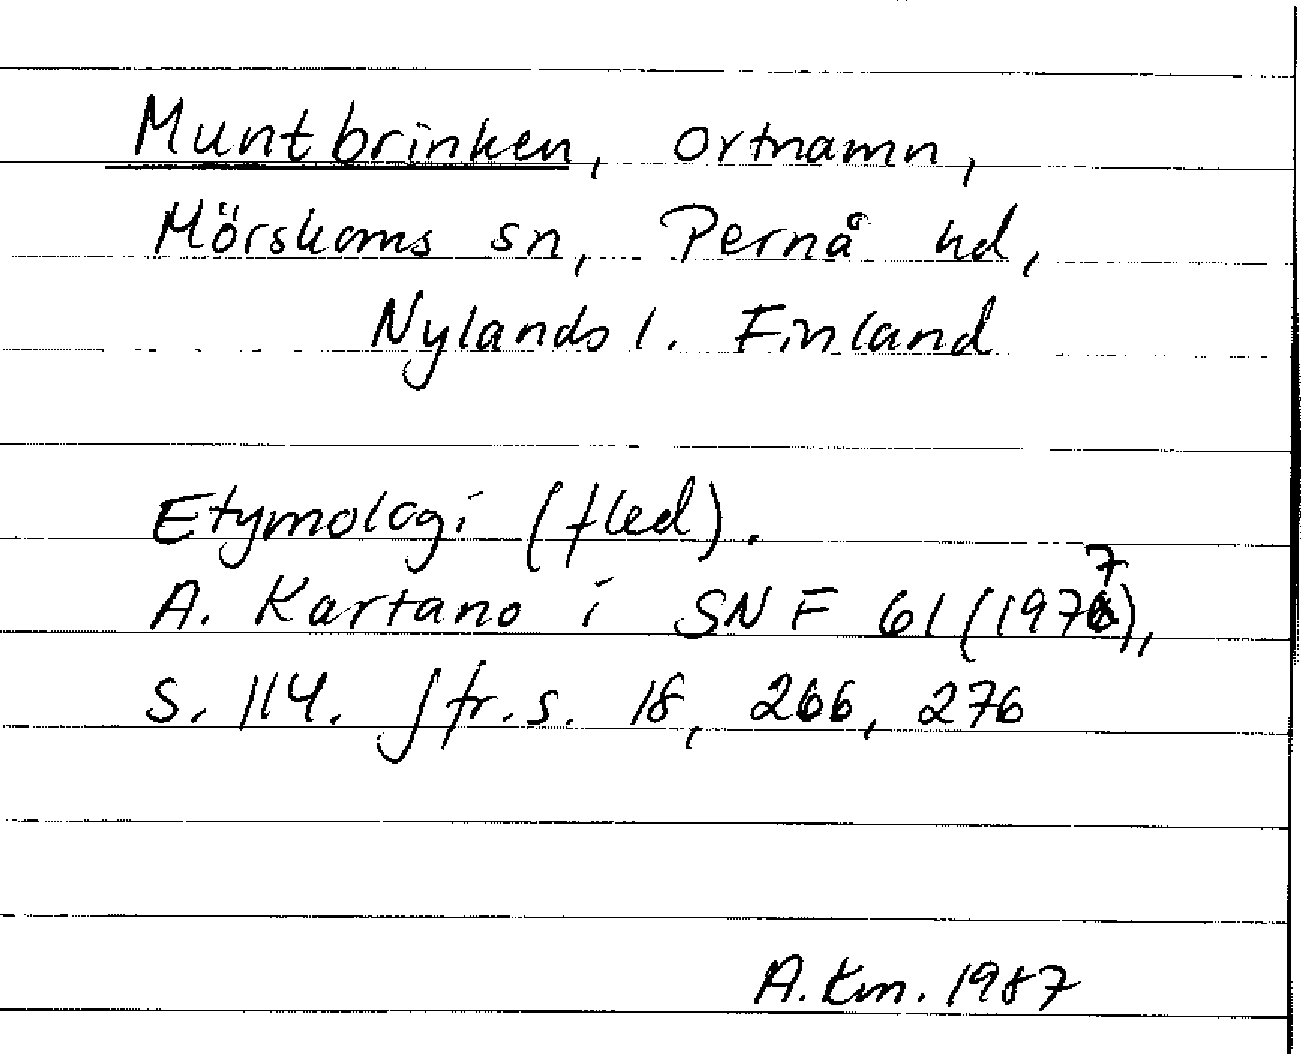 Muntbrinken, ortnamn,
Mörskoms sn, Pernå hd,
Nylands l. Finland
Etymologi (fled).
A. Kartano i SNF 61 (1977),
s. 114. Jfr. s. 18, 266, 276
A. Km. 1987